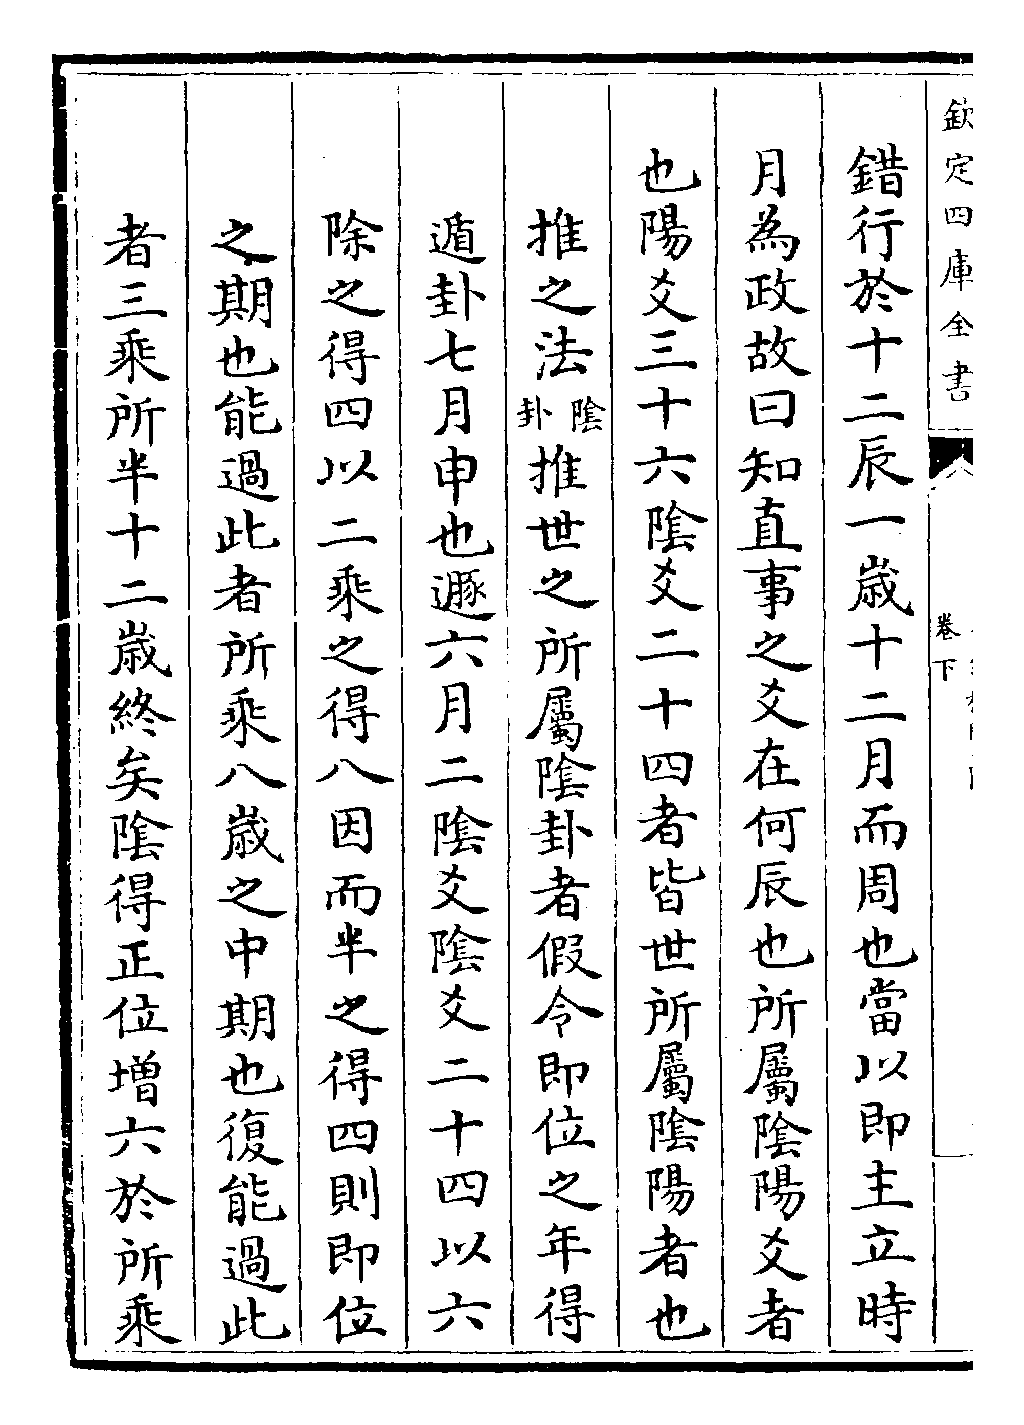 欽定四庫全書
卷下
錯行於十二辰一歳十二月而周也當以即主立時
月為政故曰知直事之爻在何辰也所屬陰陽爻者
也陽爻三十六陰爻二十四者皆世所屬陰陽者也
推之法陰卦推世之所屬陰卦者假令即位之年得
遁卦七月申也遯六月二陰爻陰爻二十四以六
除之得四以二乘之得八因而半之得四則即位
之期也能過此者所乘八歳之中期也復能過此
者三乘所半十二歳終矣陰得正位增六於所乘